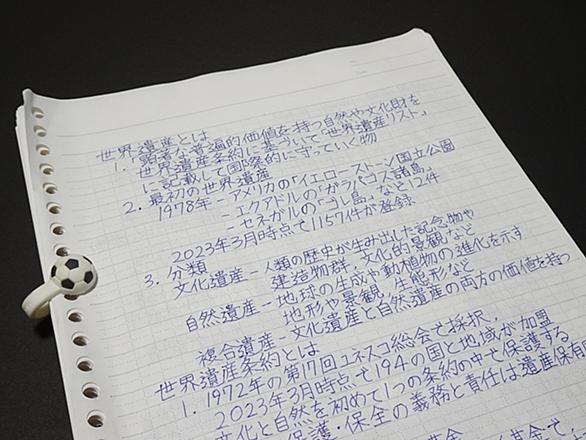 世界遺産とは
1. 顕著な普遍的価値を持つ自然や文化財を
世界遺産条約に基づいて「世界遺産リスト」
に記載して国際的に守っていく物
2. 最初の世界遺産
1978年-アメリカの「イエローストーン国立公園
-エクアドルの「ガラパゴス諸島」
-セネガルの「ゴレ島」など12件
2023年3月時点で1157件が登録
3. 分類
文化遺産-人類の歴史が生み出した記念物や
建造物群・文化的景観など
自然遺産-地球の生成や動植物の進化を示す
地形や景観,生態形など
複合遺産-文化遺産と自然遺産の両方の価値を持つ
世界遺産条約とは
1. 1972年の第17回ユネスコ総会で採択,
2023年3月時点で194の国と地域が加盟
文化と自然を初めて1つの条約の中で保護する
保護・保全の義務と責任は遺産保有国